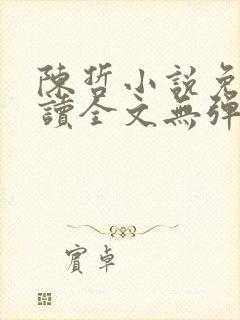 陳哲小說免
讀全文無彈
賓卓